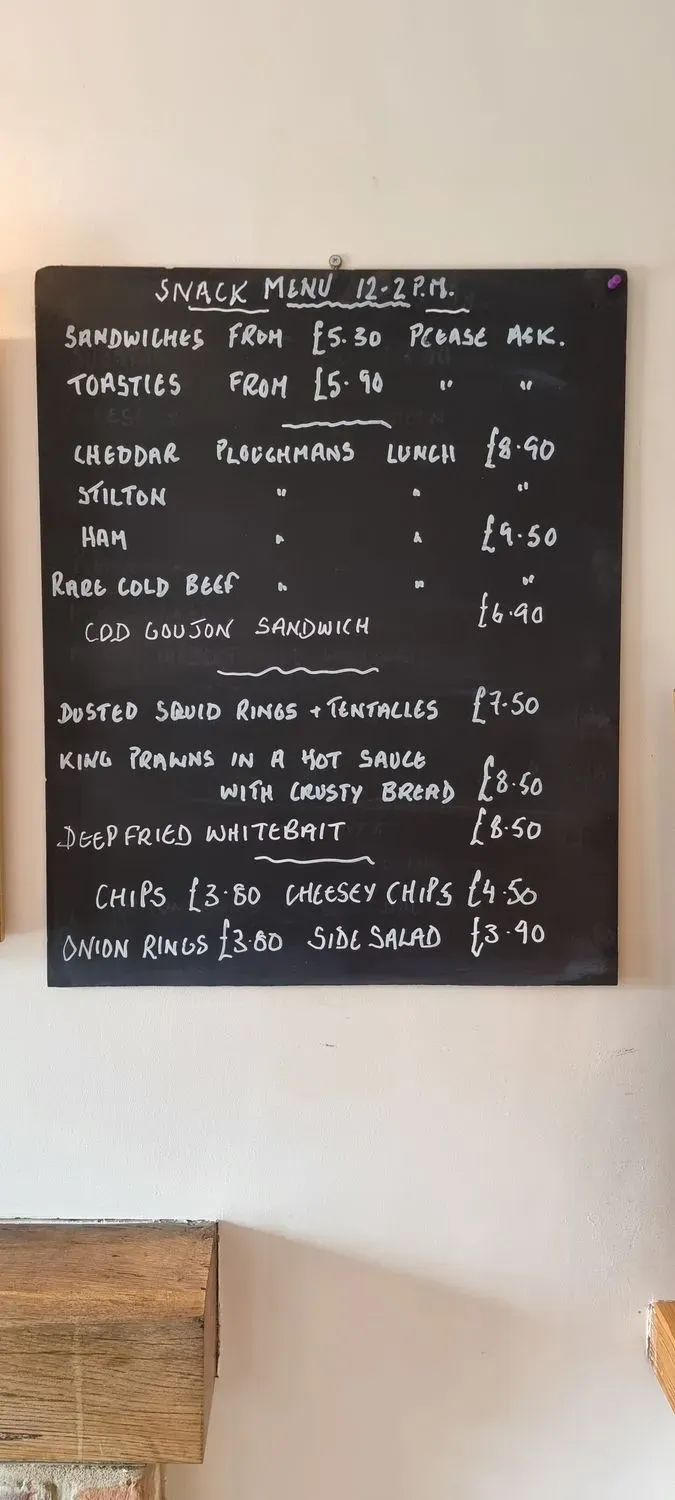 SNACK MENU 12-2 P.M.
SANDWICHES FROM £5.30 PLEASE ASK.
TOASTIES FROM £5.90 " "
CHEDDAR PLOUGHMANS LUNCH £8.90
STILTON " " "
HAM " " £9.50
RARE COLD BEEF " " "
COD GOUJON SANDWICH £6.90
DUSTED SQUID RINGS + TENTACLES £7.50
KING PRAWNS IN A HOT SAUCE
WITH CRUSTY BREAD £8.50
DEEP FRIED WHITEBAIT £8.50
CHIPS £3.80 CHEESEY CHIPS £4.50
ONION RINGS £3.80 SIDE SALAD £3.90